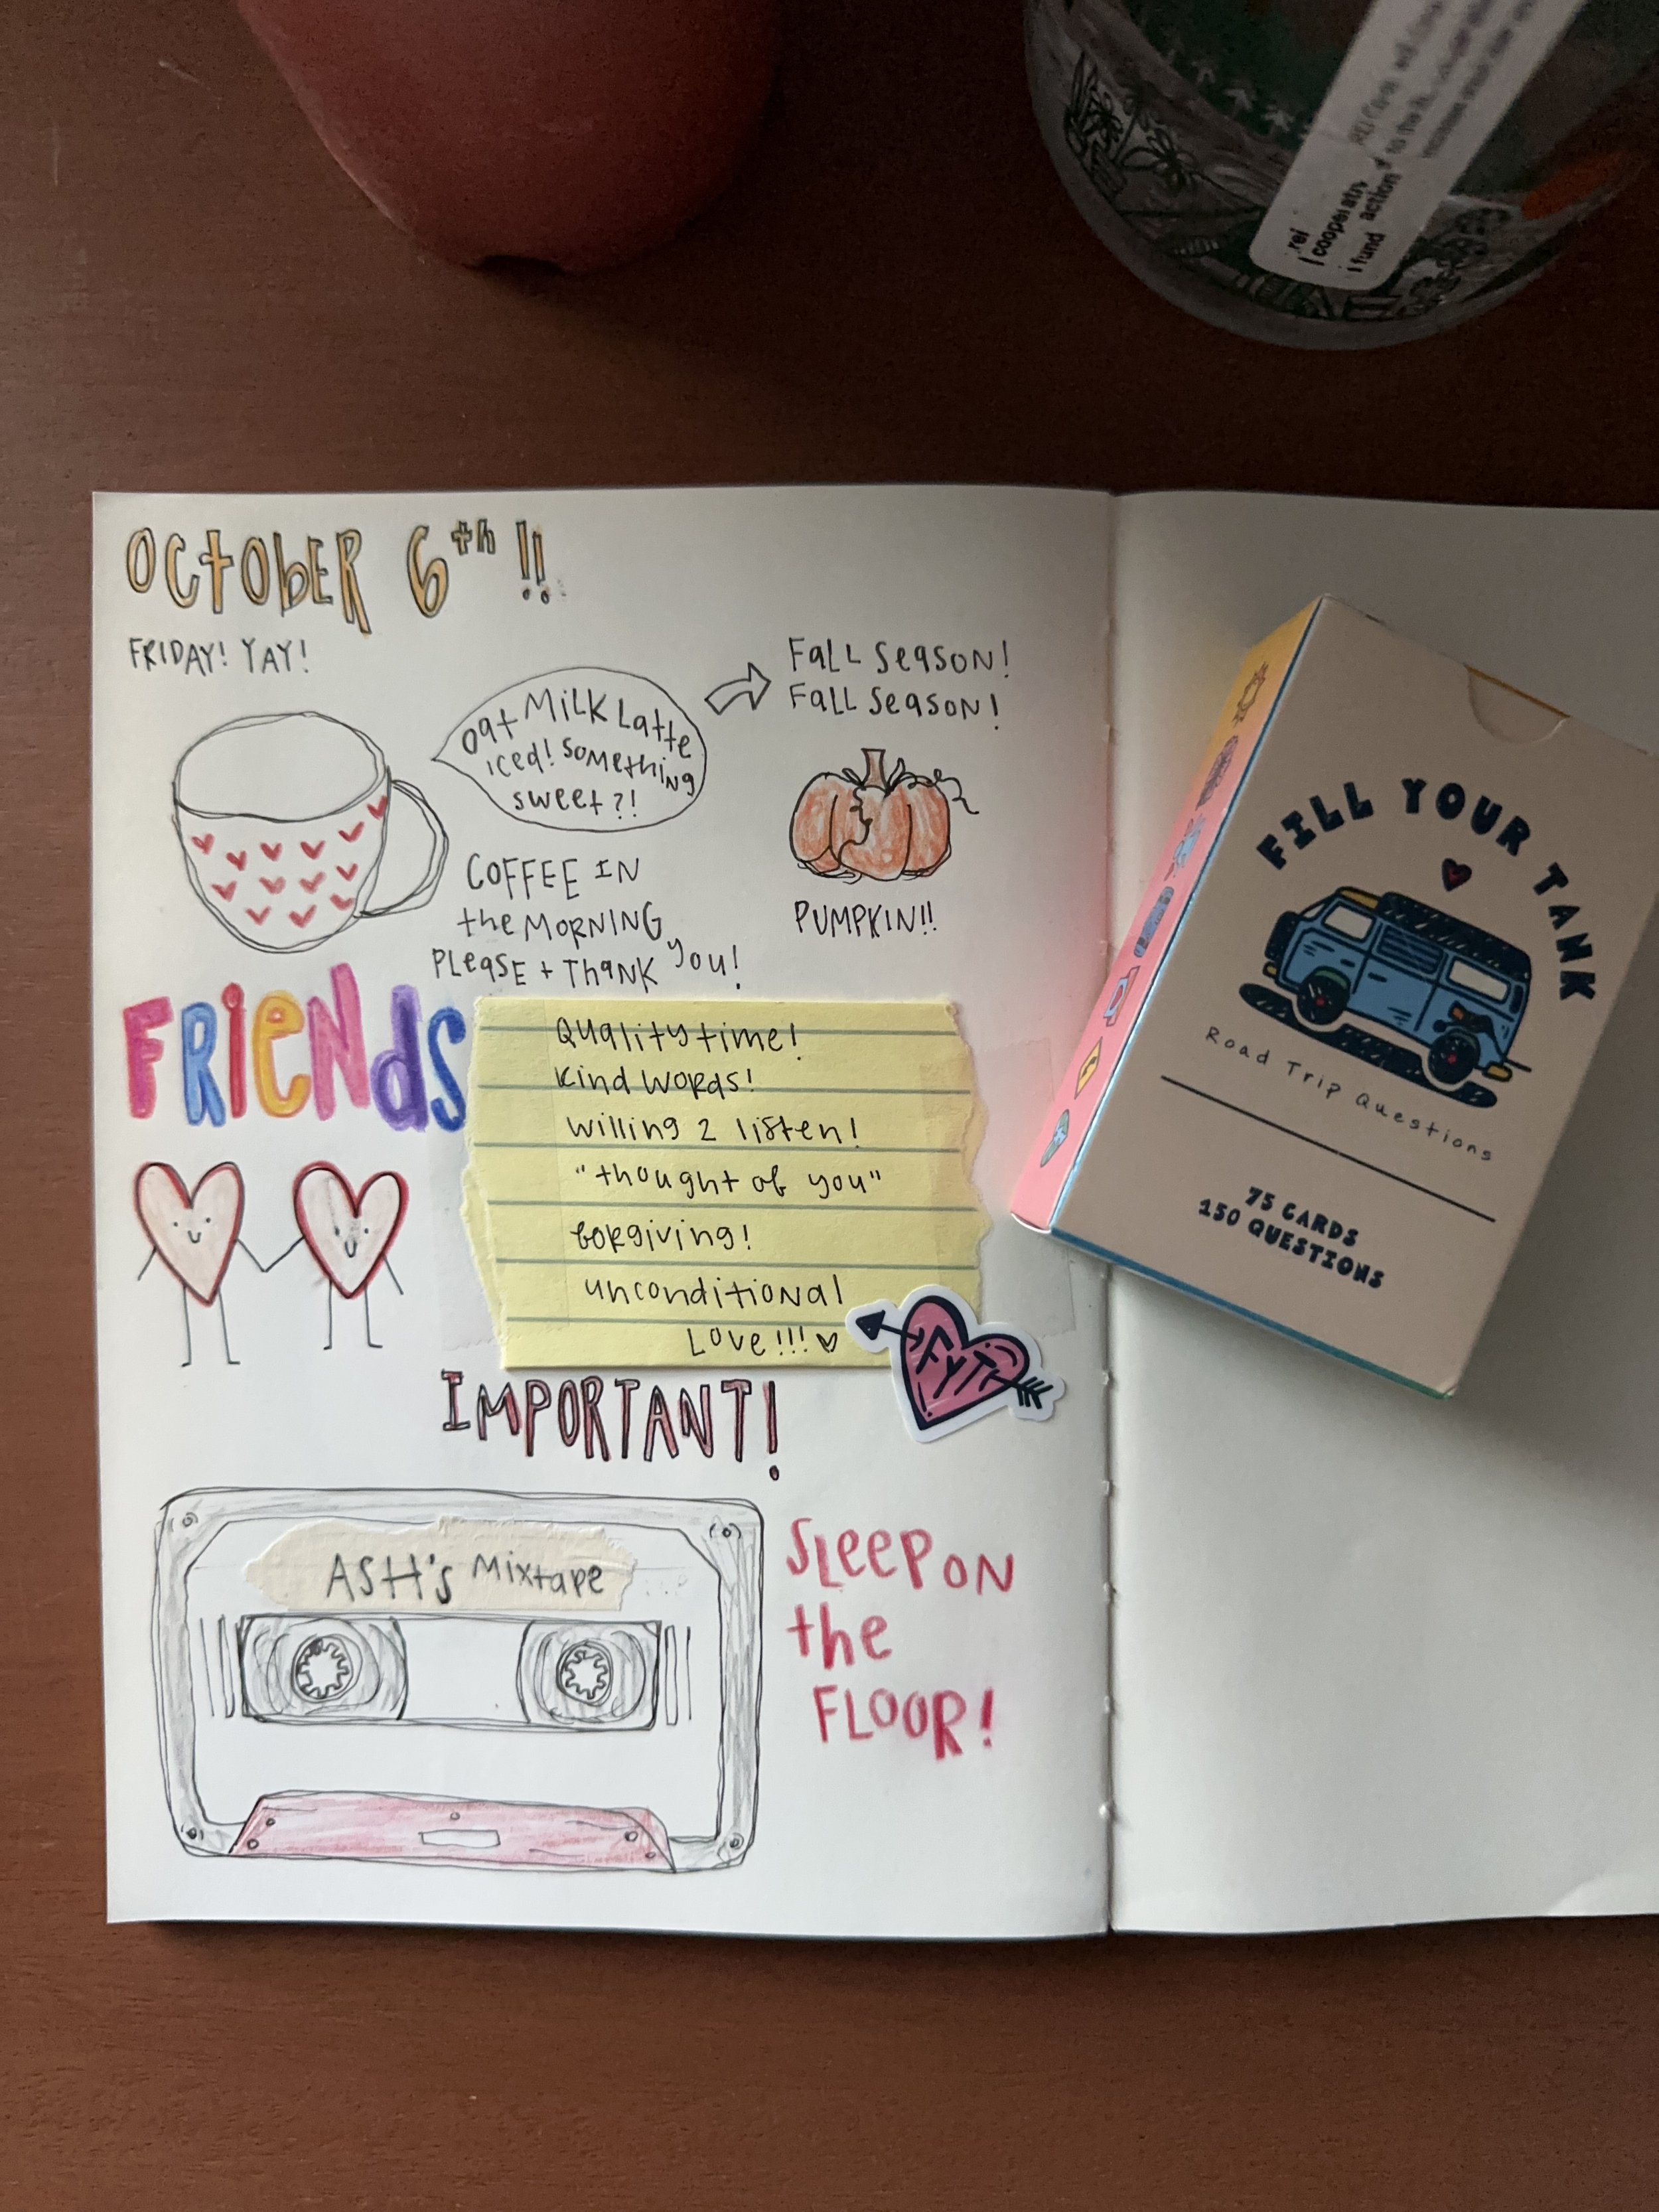 rei
cooperativ
fund action
OCTOBER 6th!!
FRIDAY! YAY!
Oat MILK Latte
iced! SOMething
sweet?!
FALL SeasON!
FALL SeasON!
COFFEE IN
the MORNING
PLeasE + THaNK you!
PUMPKIN!!
FRieNds
Quality time!
Kind WORds!
willing 2 listen!
"thought of you"
forgiving!
unconditional
Love!!!
FYT
IMPORTANT!
ASH's Mixtape
SLeeP ON
the
FLOOR!
FILL YOUR TANK
Road Trip Questions
75 CARDS
150 QUESTIONS